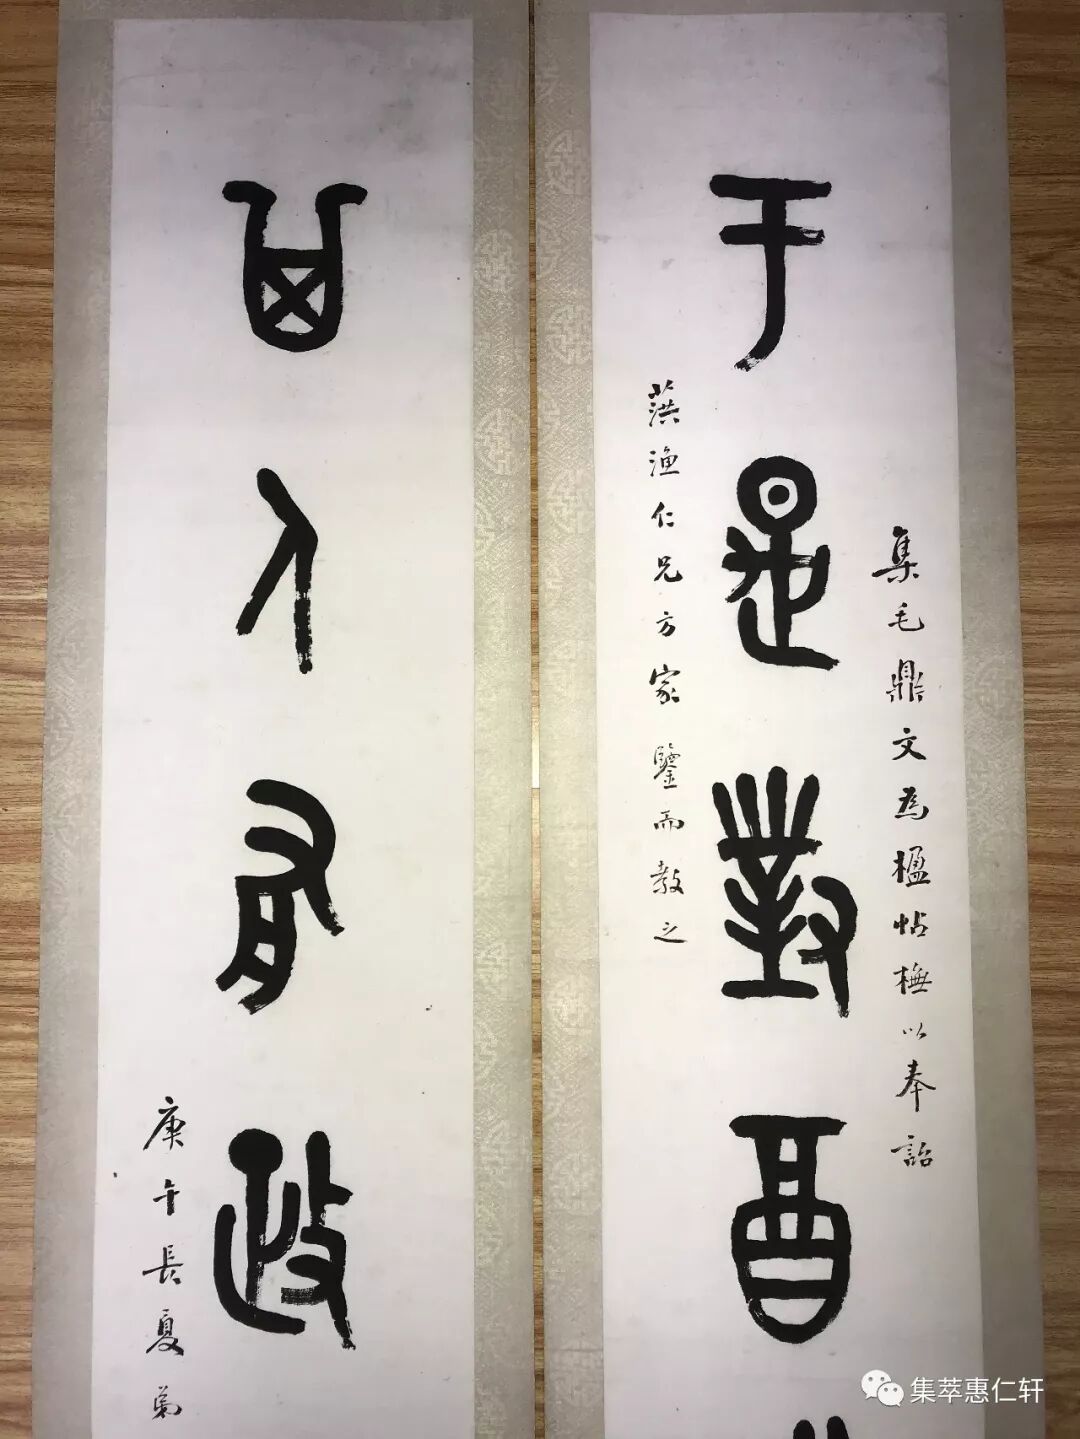 于是對酉
集毛鼎文為楹帖橅以奉詒
葓漁仁兄方家鑒而教之
其人有政
庚午長夏弟
集萃惠仁轩